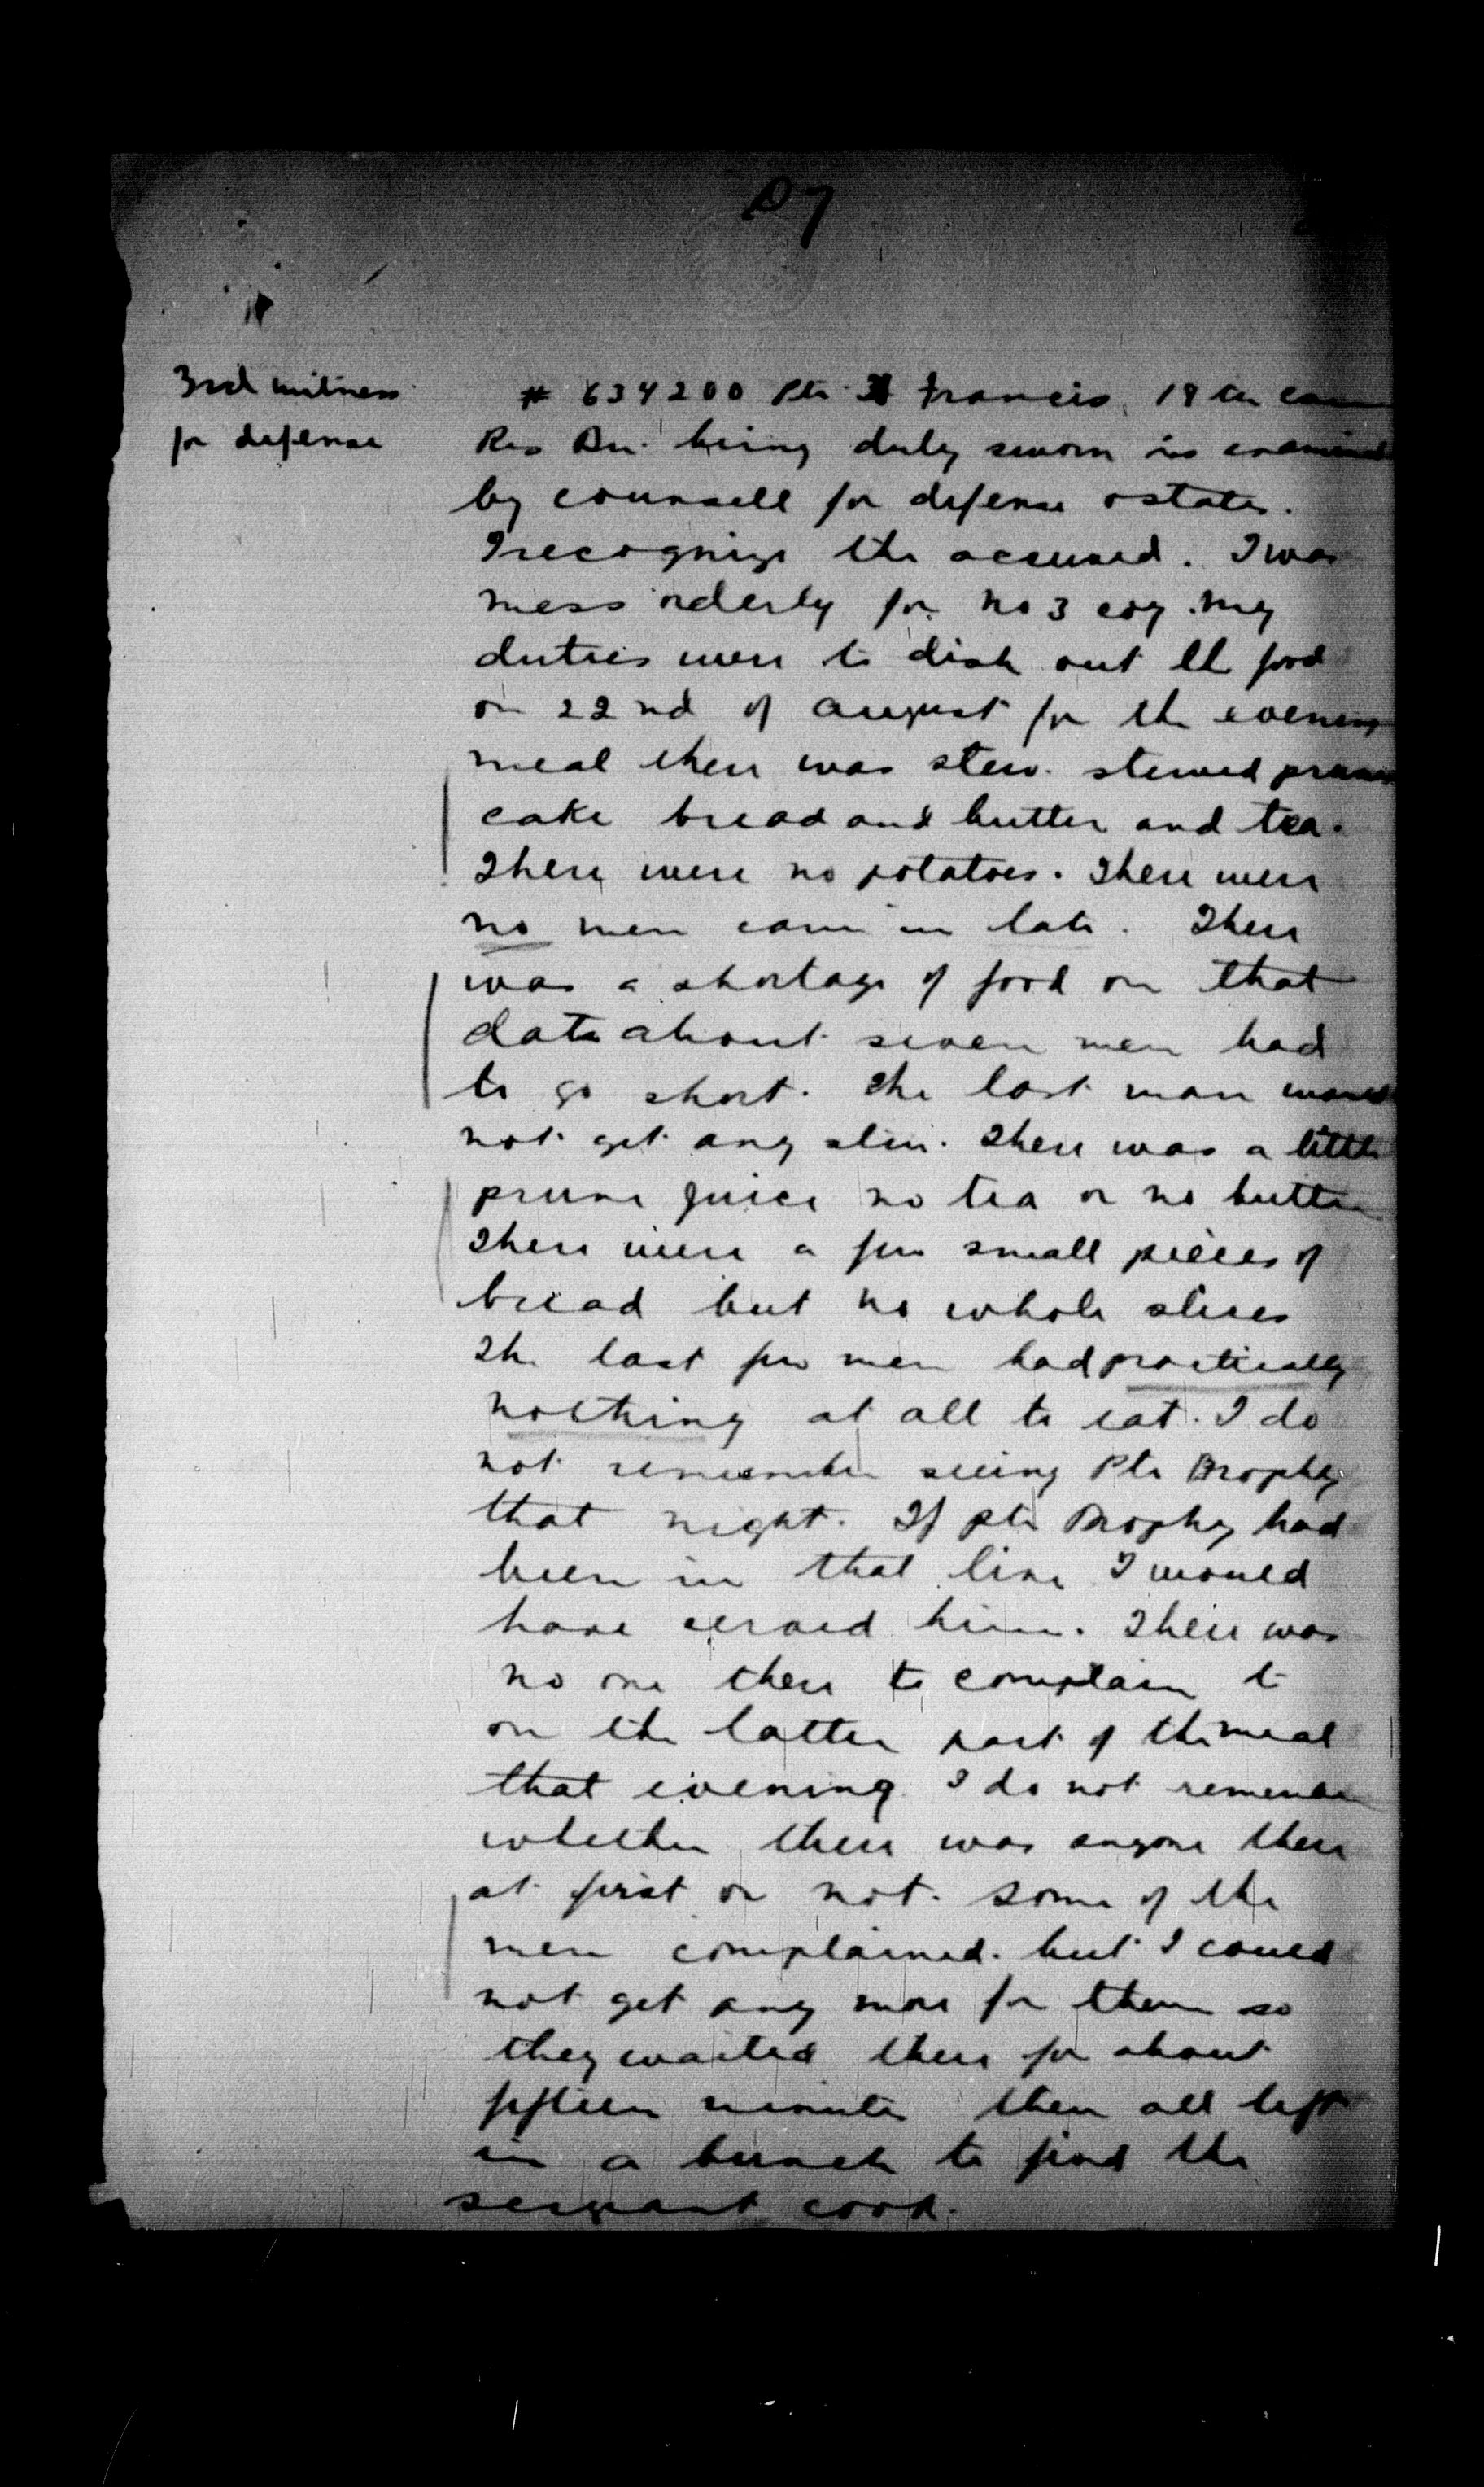 D7
3rd witness
for defense
# 634200 Pte Francis, 19th Can
Res Bn. being duly sworn is examined
by counsell for defense & states.
I recognize the accused. I was
mess orderly for no 3 coy. my
duties were to dish out the food
on 22nd of august for the evening
meal there was stew. stewed prunes
cake bread and butter and tea.
There were no potatoes. There were
no men came in late. There
was a shortage of food on that
date about seven men had
to go short. The last man would
not get any stew. There was a little
prune juice no tea or no butter
There were a few small pieces of
bread but no whole slices
The last few men had practically
nothing at all to eat. I do
not remember seeing Pte Brophy
that night. If pte Brophy had
been in that line I would
have served him. There was
no one there to complain to
on the latter part of the meal
that evening I do not remember
whether there was anyone there
at first or not. Some of the
men complained. but I could
not get any more for them so
they waited there for about
fifteen minutes then all left
in a bunch to find the
sergeant cook.